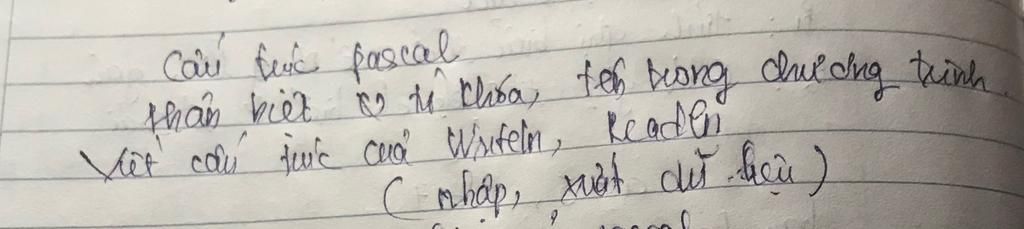 Cấu trúc pascal
phân biệt từ khóa, tên trong chương trình
Viết cấu trúc của Writeln, Readln
(nhập, xuất dữ liệu)